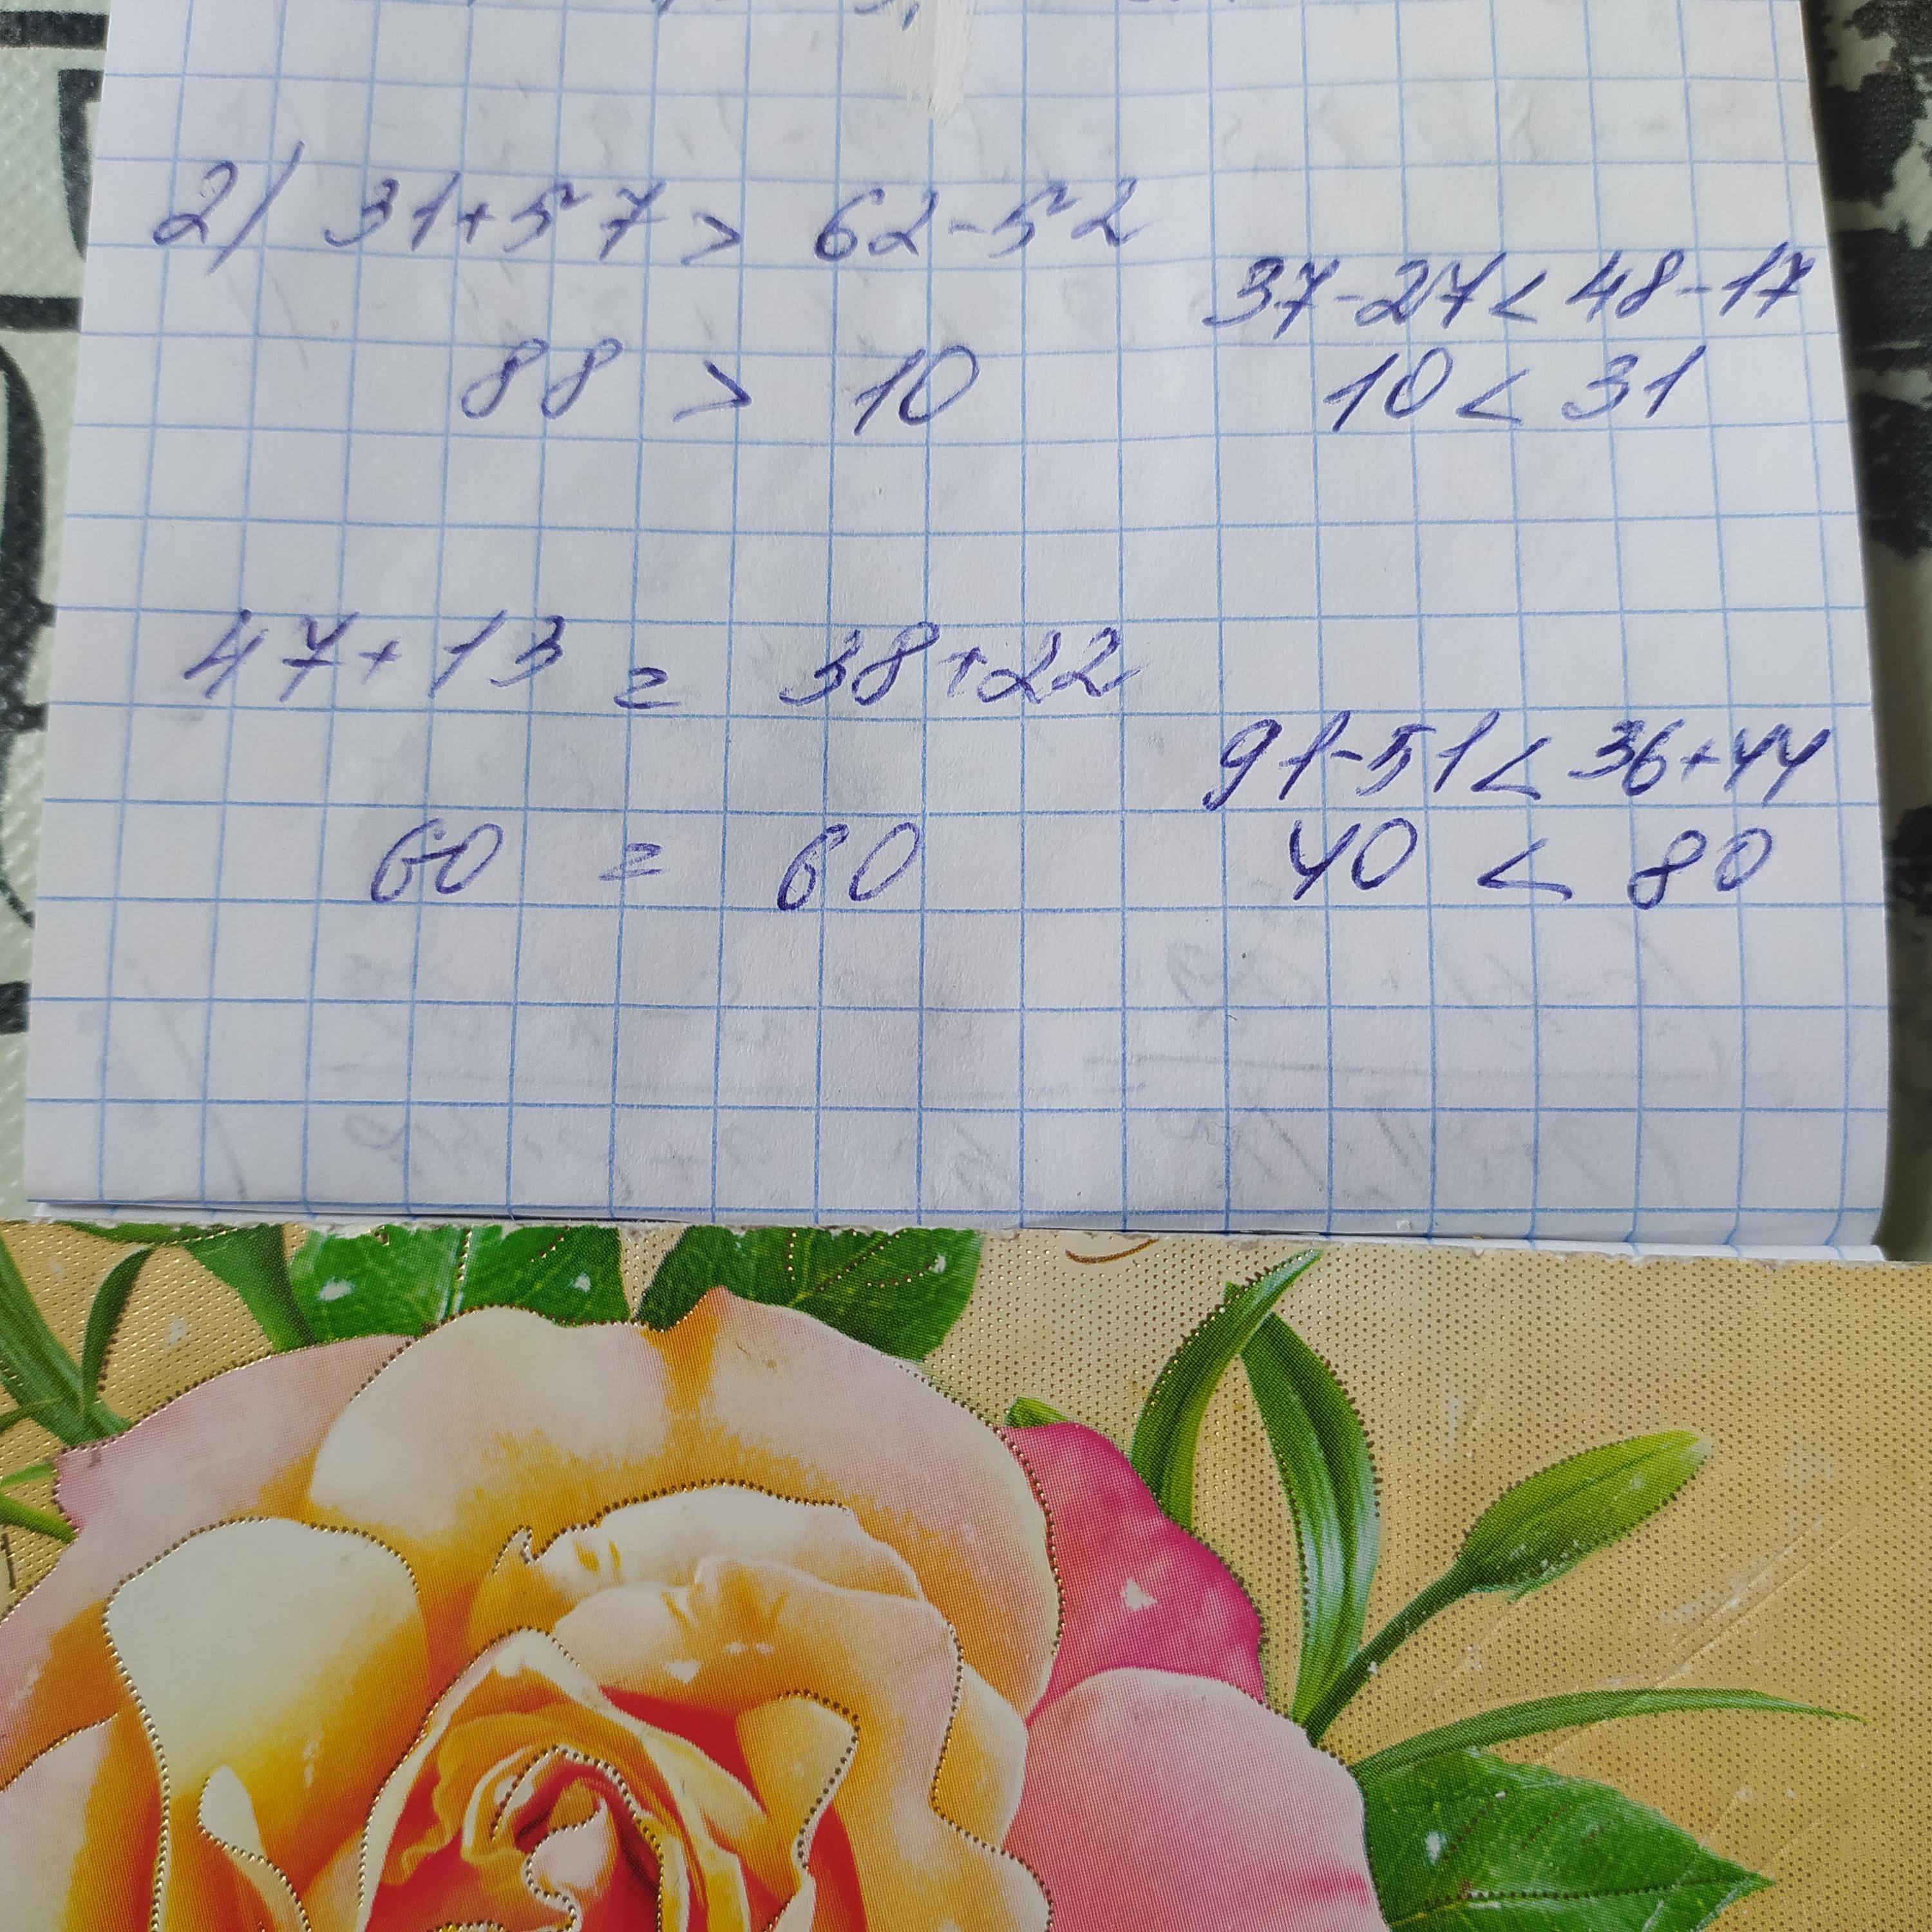 2) 31+57 > 62-52
88 > 10
37-27 < 48-17
10 < 31
47+13 = 38+22
60 = 60
91-51 < 36+44
40 < 80